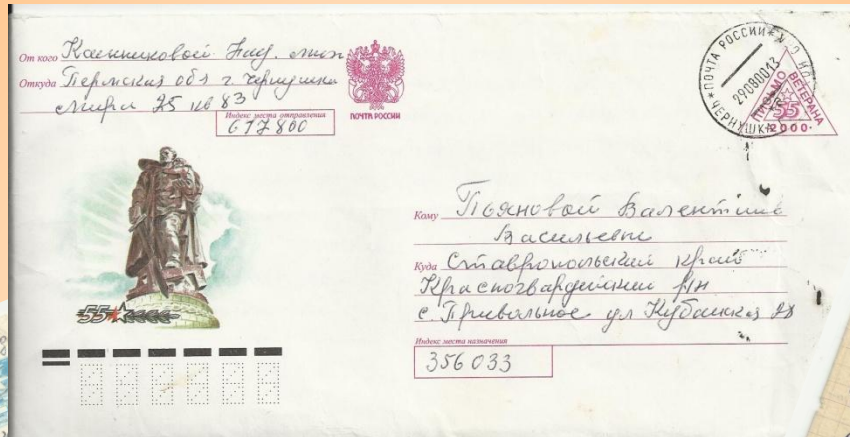 От кого
Откуда Пермская обл г. Чернушка
Мира 25 кв 83
Индекс места отправления
617800
ПОЧТА РОССИИ
ПОЧТА РОССИИ
ЧЕРНУШКА
290800
ПИСЬМО ВЕТЕРАНА
55
2000
55
Кому Пьяновой Валентине
Васильевне
Куда Ставропольский край
Красногвардейский р/н
с. Привольное ул Кубанская 28
Индекс места назначения
356033